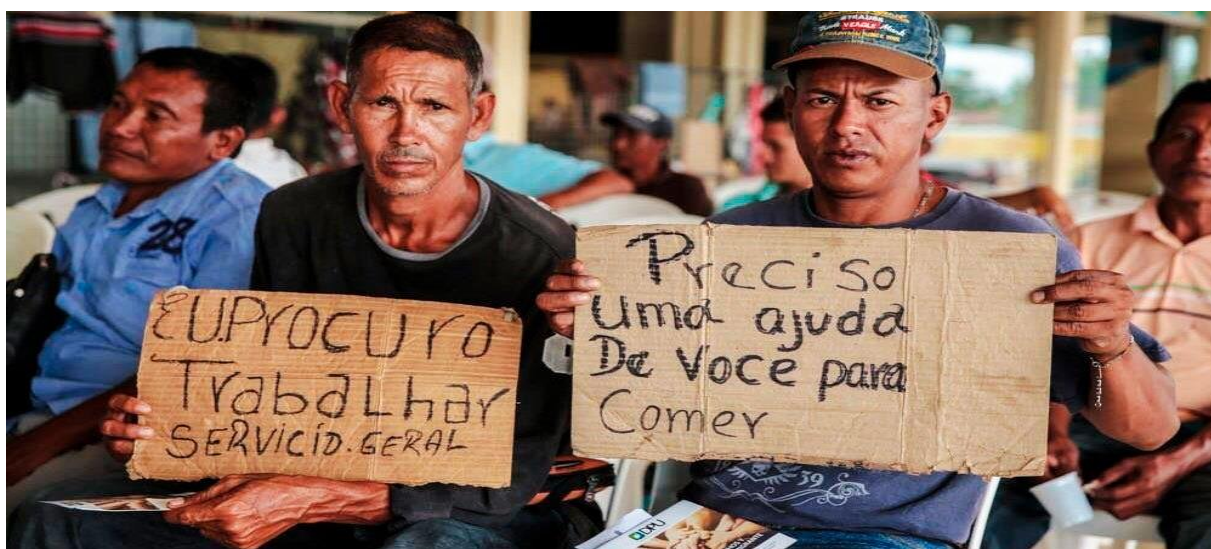 EU.PrOCUrO
TrabaLhar
SERVICIO.GERAL
Preciso
uma ajuda
De Voce para
Comer
STRAUSS
28
39
DPU